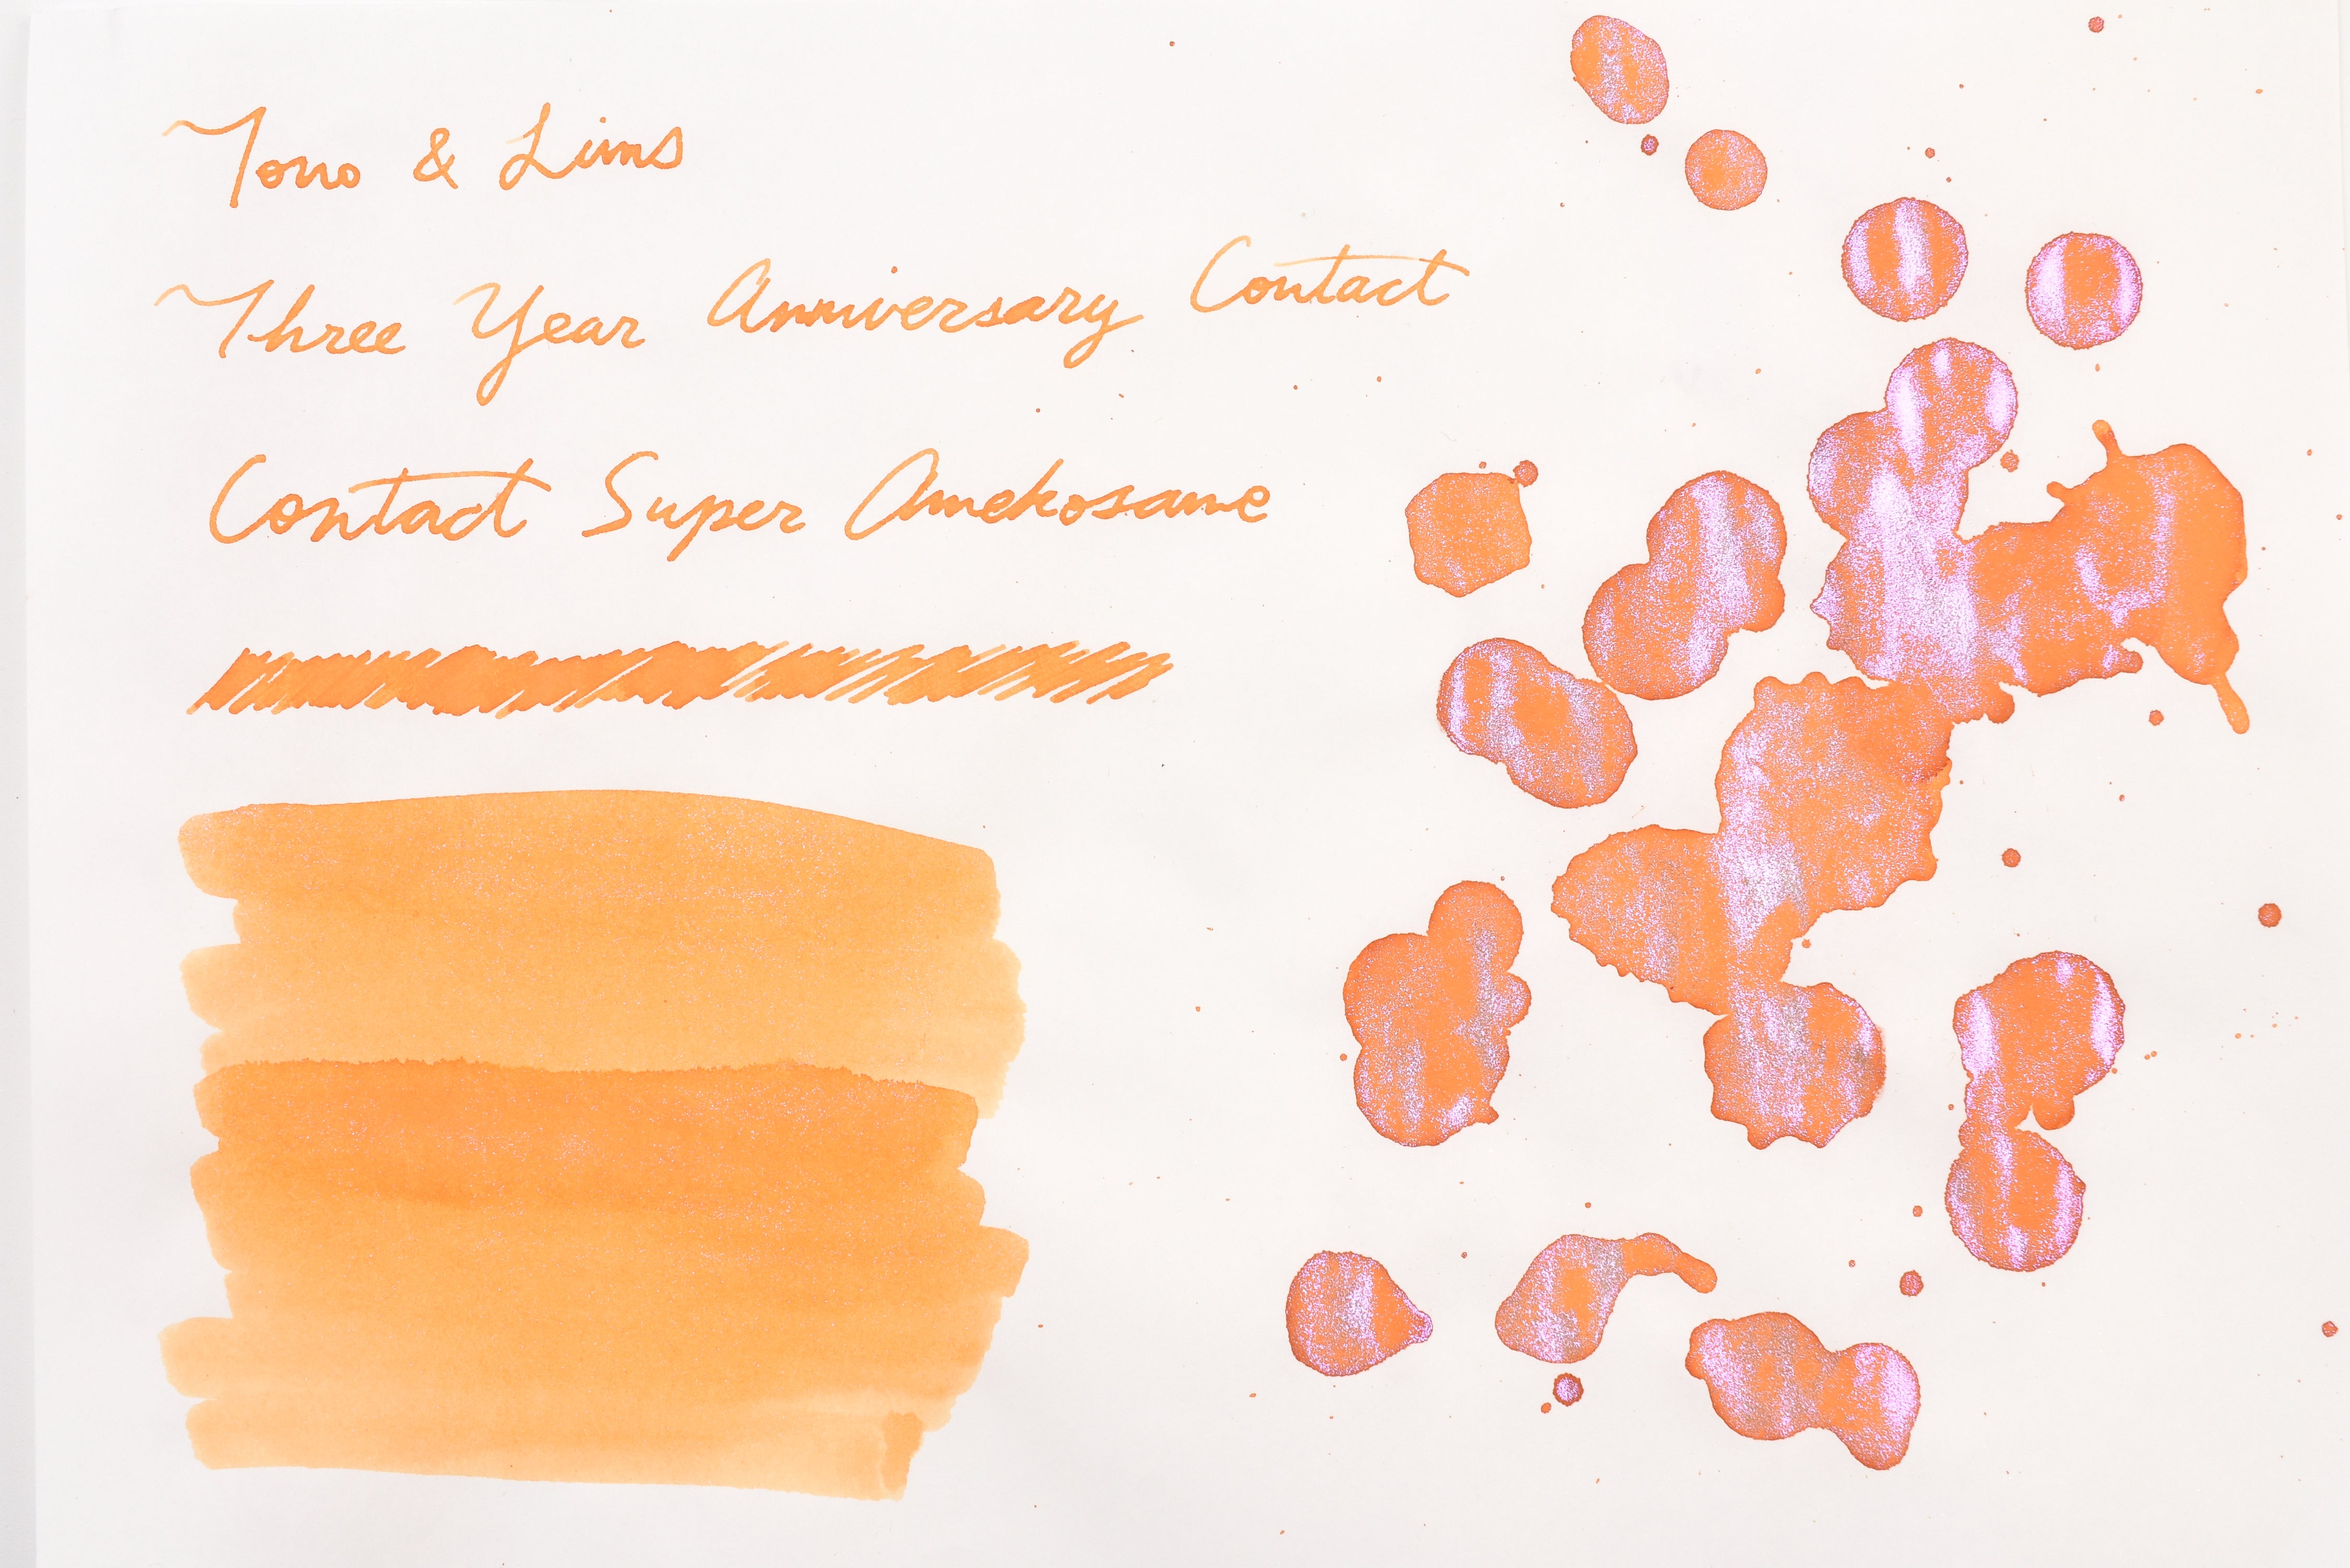 Tono & Lims
Three Year Anniversary Contact
Contact Super Amekosame